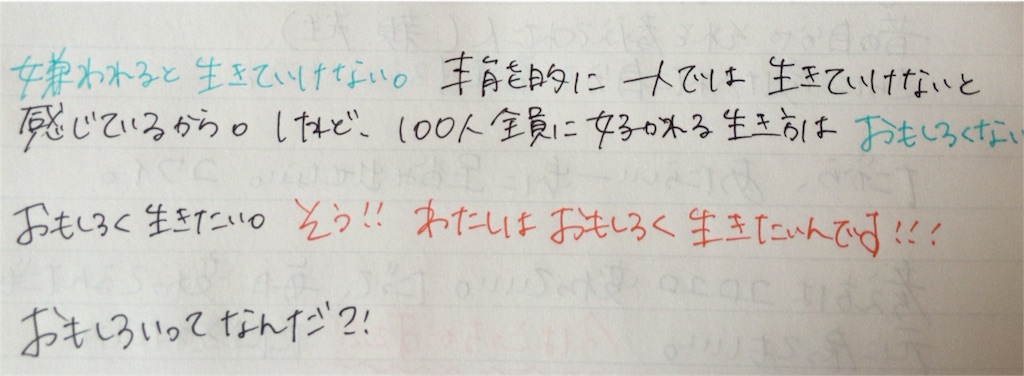 嫌われると 生きていけない。 本能的に 一人では 生きていけないと
感じているから。けれど、100人全員に好かれる生き方は おもしろくない
おもしろく生きたい。 そう!! わたしは おもしろく 生きたいんです!!!
おもしろいってなんだ?!